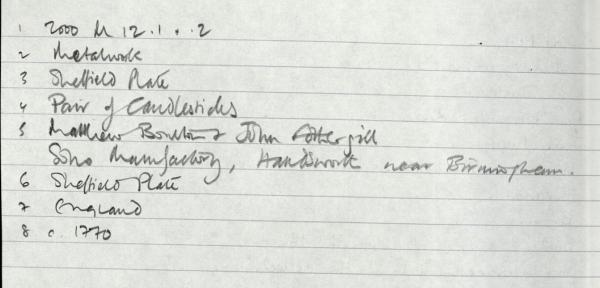 1 2000 M 12.1 + .2
2 Metalwork
3 Sheffield Plate
4 Pair of Candlesticks
5 Matthew Boulton & John Fothergill
Soho Manufactory, Handsworth near Birmingham.
6 Sheffield Plate
7 England
8 c. 1770